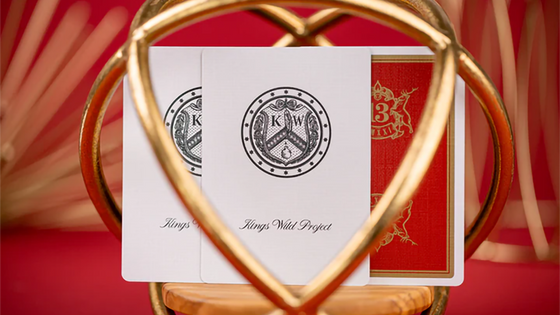 K W
Kings Wild Project
K
Kings
13